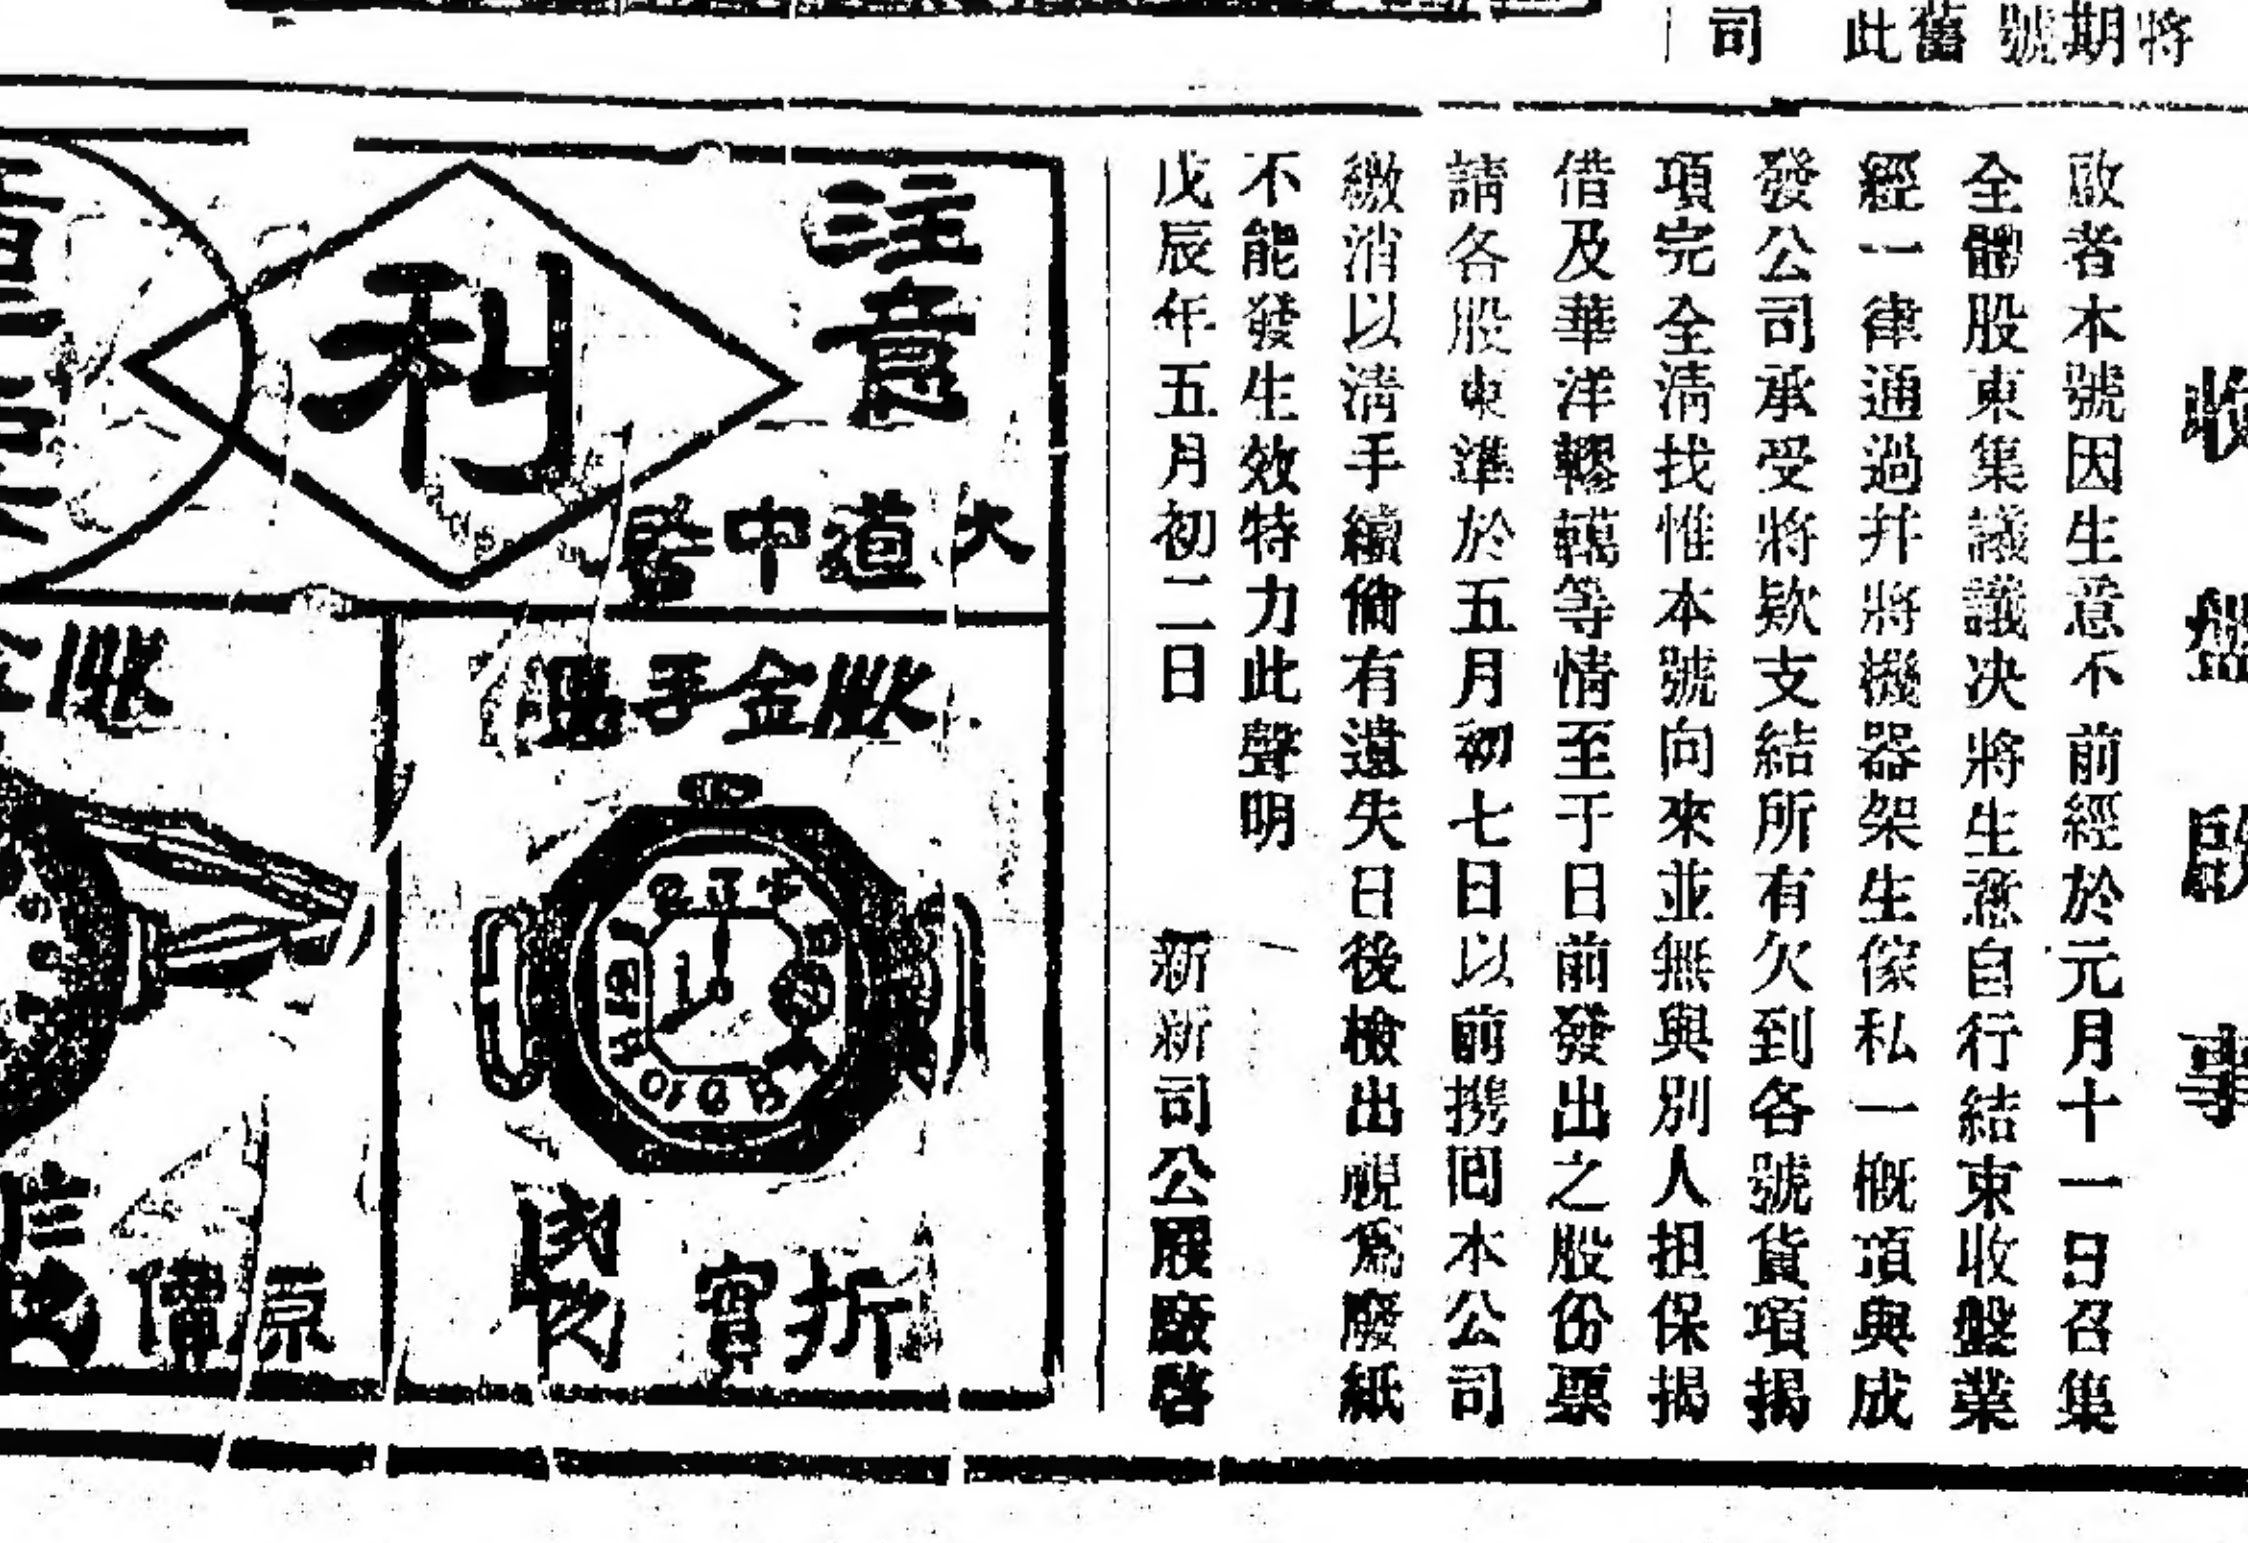 將
期
號
舊
此
司
收盤啟事
啟者本號因生意不前經於元月十一日召集
全體股東集議議决將生意自行結束收盤業
經一律通過幷將機器架生傢私一槪項與成
發公司承受將欵支結所有欠到各號貨項揭
項完全淸找惟本號向來並無與別人担保揭
借及華洋轇轕等情至于日前發出之股份票
請各股東準於五月初七日以前携囘本公司
繳消以淸手續倘有遺失日後檢出視爲廢紙
不能發生效特力此聲明
戊辰年五月初二日 新新司公履廠啓
注意
利
大道中
金手
折實
原價